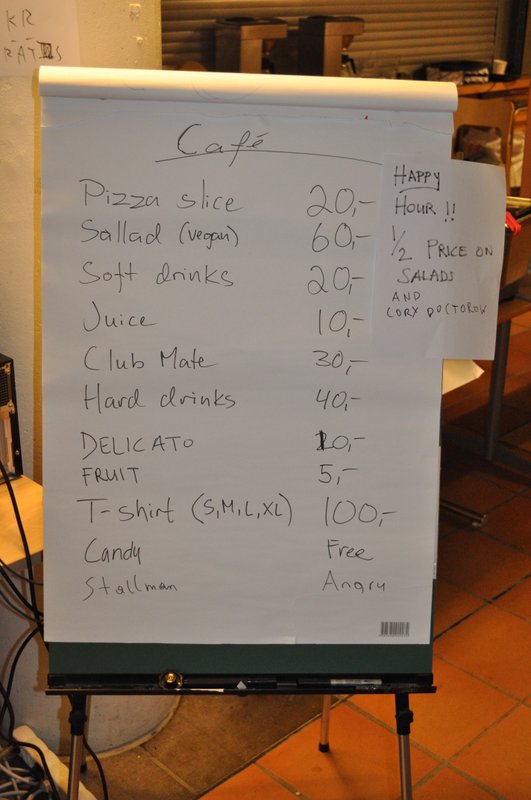 KR
GRATIS
Café
Pizza slice 20,-
Sallad (vegan) 60,-
Soft drinks 20,-
Juice 10,-
Club Mate 30,-
Hard drinks 40,-
DELICATO 10,-
FRUIT 5,-
T-shirt (S,M,L,XL) 100,-
Candy Free
Stallman Angry
HAPPY
HOUR !!
1/2 PRICE ON
SALADS
AND
CORY DOCTOROW